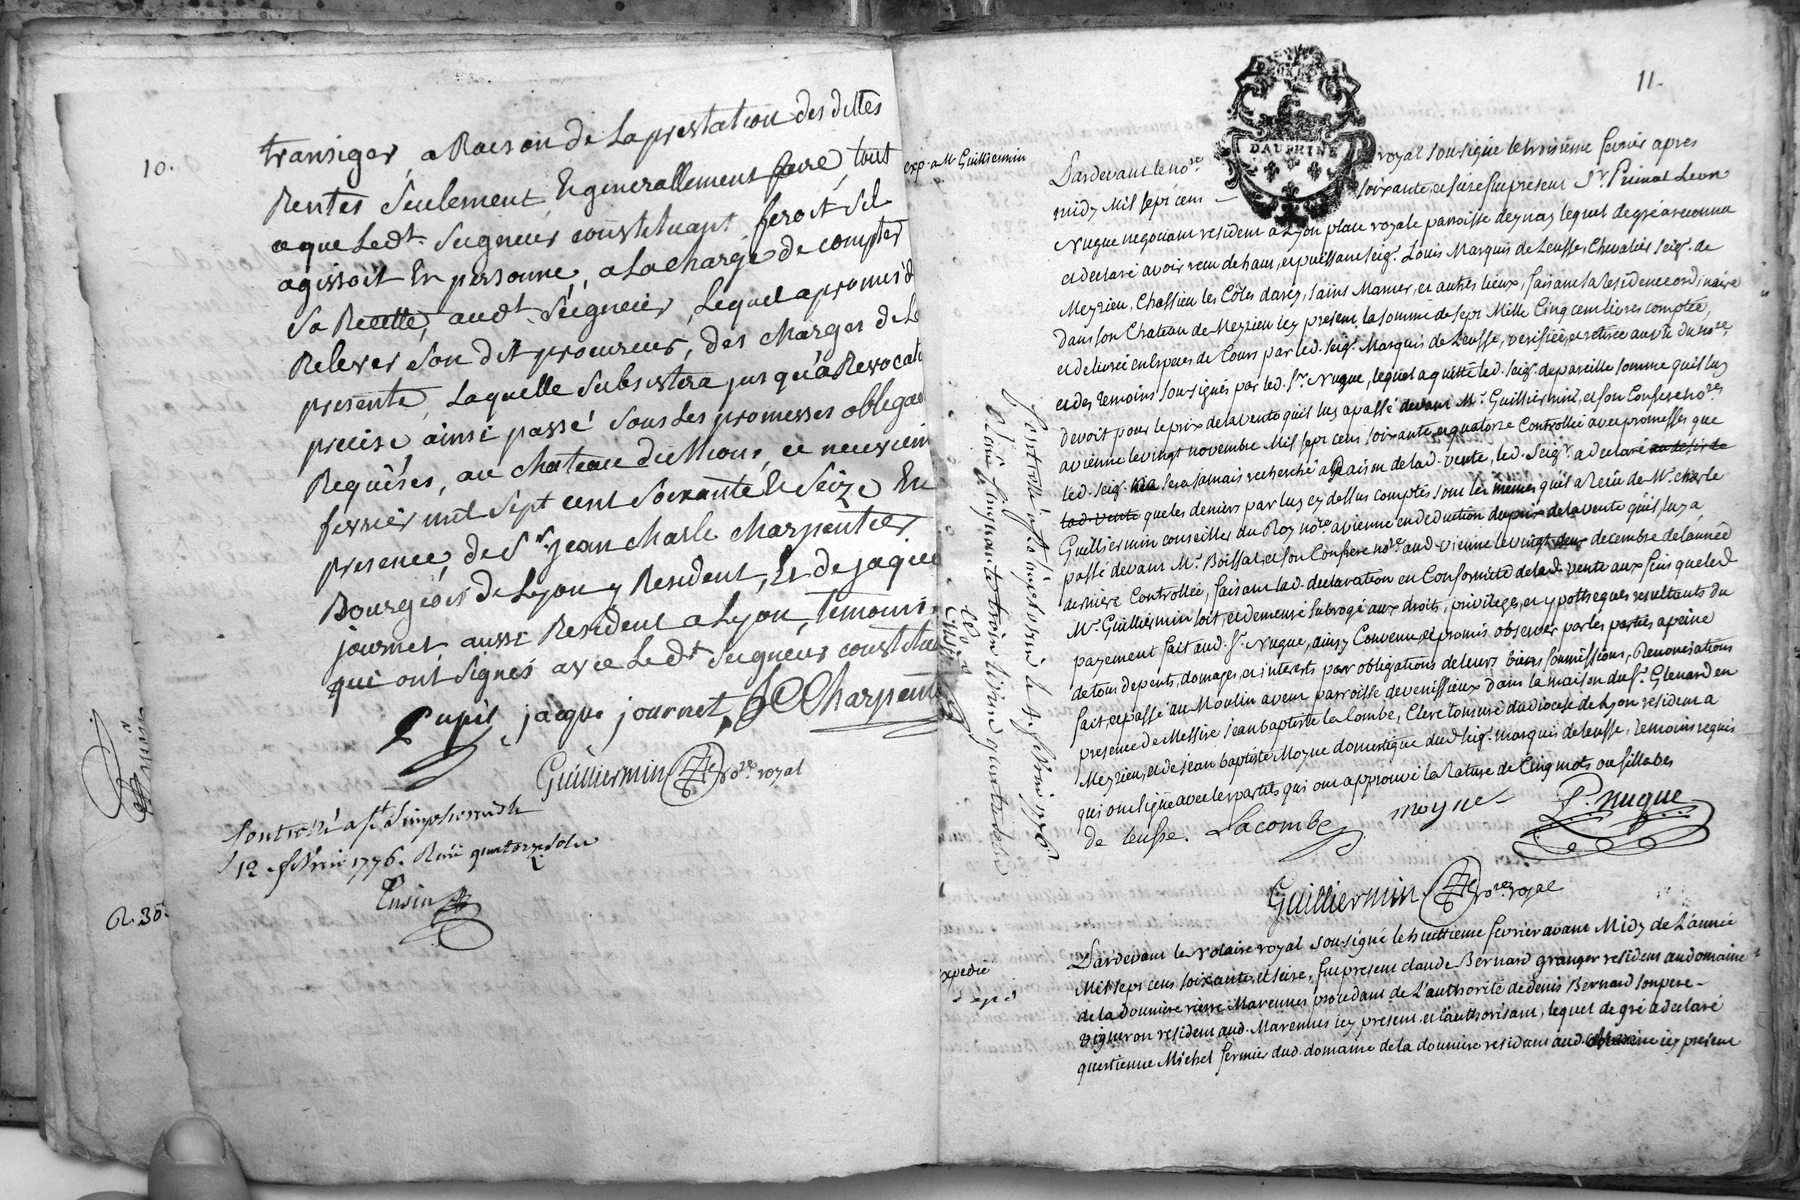 10.
transiger, a Raison de La prestation des dittes
Rentes seulement, Et generallement faire, tout
ce que Ledt. Seigneur constituant feroit s'il
agissoit En personne, a La charge de compter
Sa Recette, audt. Seigneur, Lequel a promis d
Relever son dit procureur, des charges de La
presente, Laquelle subsistera jusqu'a Revocati
precise ainsi passé sous Les promesses obligao
Requises, au chateau du Mions, ce neuviem
fevrier mil sept cent soixante Et Seize En
presence, de Sr. jean charle charpentier
Bourgeois de Lyon y Resident, Et de jaque
journet, aussi Resident a Lyon, temoins
qui ont signés avec Ledt Seigneur constitua
Pupil jacque journet, JC Charpenti
Guilliermin nore. royal
Controllé a St Simphorien
12 fevrier 1776. Reçu quatorze sols
R. 30
11.
DAUPHINE
exp. a Mr Guilliermin
Pardevant le nore. royal sousigné le troisieme fevrier apres
midy Mil sept cens soixante et seize fut present Sr. Primat Leon
Nugue negociant resident a Lyon place royale parroisse deynay lequel de gré a reconnu
et declaré avoir reçu de haut, et puissant seigr. Louis Marquis de Leusse, Chevalier seigr. de
Meyrieu, Chassieu les Côtes darey, saint Mamer, et autres lieux, faisant sa residence ordinaire
dans son Chateau de Meyrieu icy present la somme de sept Mille Cinq cent livres comptée,
et delivrée en Especes de Cours par led. seigr. Marquis de Leusse, verifiée, et retirée au vû du nore.
et des temoins sousignés par led. Sr. Nugue, lequel a quitté led. seigr. de pareille somme qu'il luy
devoit pour le prix de la vente qu'il luy a passé devant Mr. Guilliermin, et son Confrere nores
a vienne le vingt novembre Mil sept cens soixante et quatorze Controllée avec promesses que
led. seigr. n'en sera jamais recherché a Raison de lad. vente, led. seigr. a declaré au desir de
lad. vente que les deniers par luy cy dessus comptés sont les memes qu'il a Reçu de Mr. charle
Guilliermin conseiller du Roy nore a vienne en deduction du prix de la vente qu'il luy a
passé devant Mr. Boissat et son Confrere nore. aud. vienne le vingt deux decembre de l'année
derniere Controllée, faisant lad. declaration en Conformité de lad. vente aux fins que led.
Mr. Guilliermin soit, et demeure subrogé aux droits, privileges, et ypotheques resultants du
payement fait aud. Sr. Nugue, ainsy Convenu, et promis observer par les parties a peine
de tous depents, domages, et interets par obligations de leurs biens soumissions, Renonciations
fait et passé au Moulin a vent parroisse de venissieux dans la maison du Sr. Glenard en
presence de Messire Jean baptiste la Combe, Clerc tonsuré du diocese de Lyon resident a
Meyrieu, et de Jean baptiste Moyne domestique dud. seigr. marquis de leusse, temoins requis
qui ont signé avec les parties qui ont approuvé la Rature de Cinq mots ou sillabes
de leusse. Lacombe moyne P. nugue
Guilliermin nore. royal
xpedié
Pardevant le Notaire royal sousigné le huittieme fevrier avant Midy de L'année
Mil sept cens soixante, et seize, fut present claude Bernard granger resident au domaine
de la Donniere riere Marennes procedant de L'authorité de denis Bernard son pere
vigneron resident aud. Marennes icy present et l'authorisant, lequel de gré a declaré
qu'estienne Michel fermier dud. domaine de la donniere residant aud. icy present